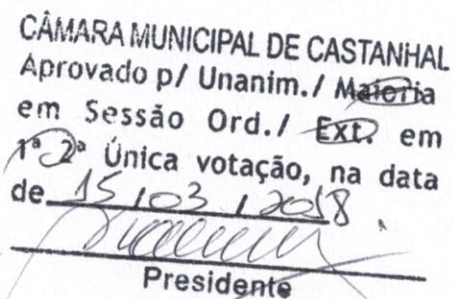 CÂMARA MUNICIPAL DE CASTANHAL
Aprovado p/ Unanim./ Maioria
em Sessão Ord./ Ext. em
1ª 2ª Única votação, na data
de 15 / 03 / 2018.
Presidente